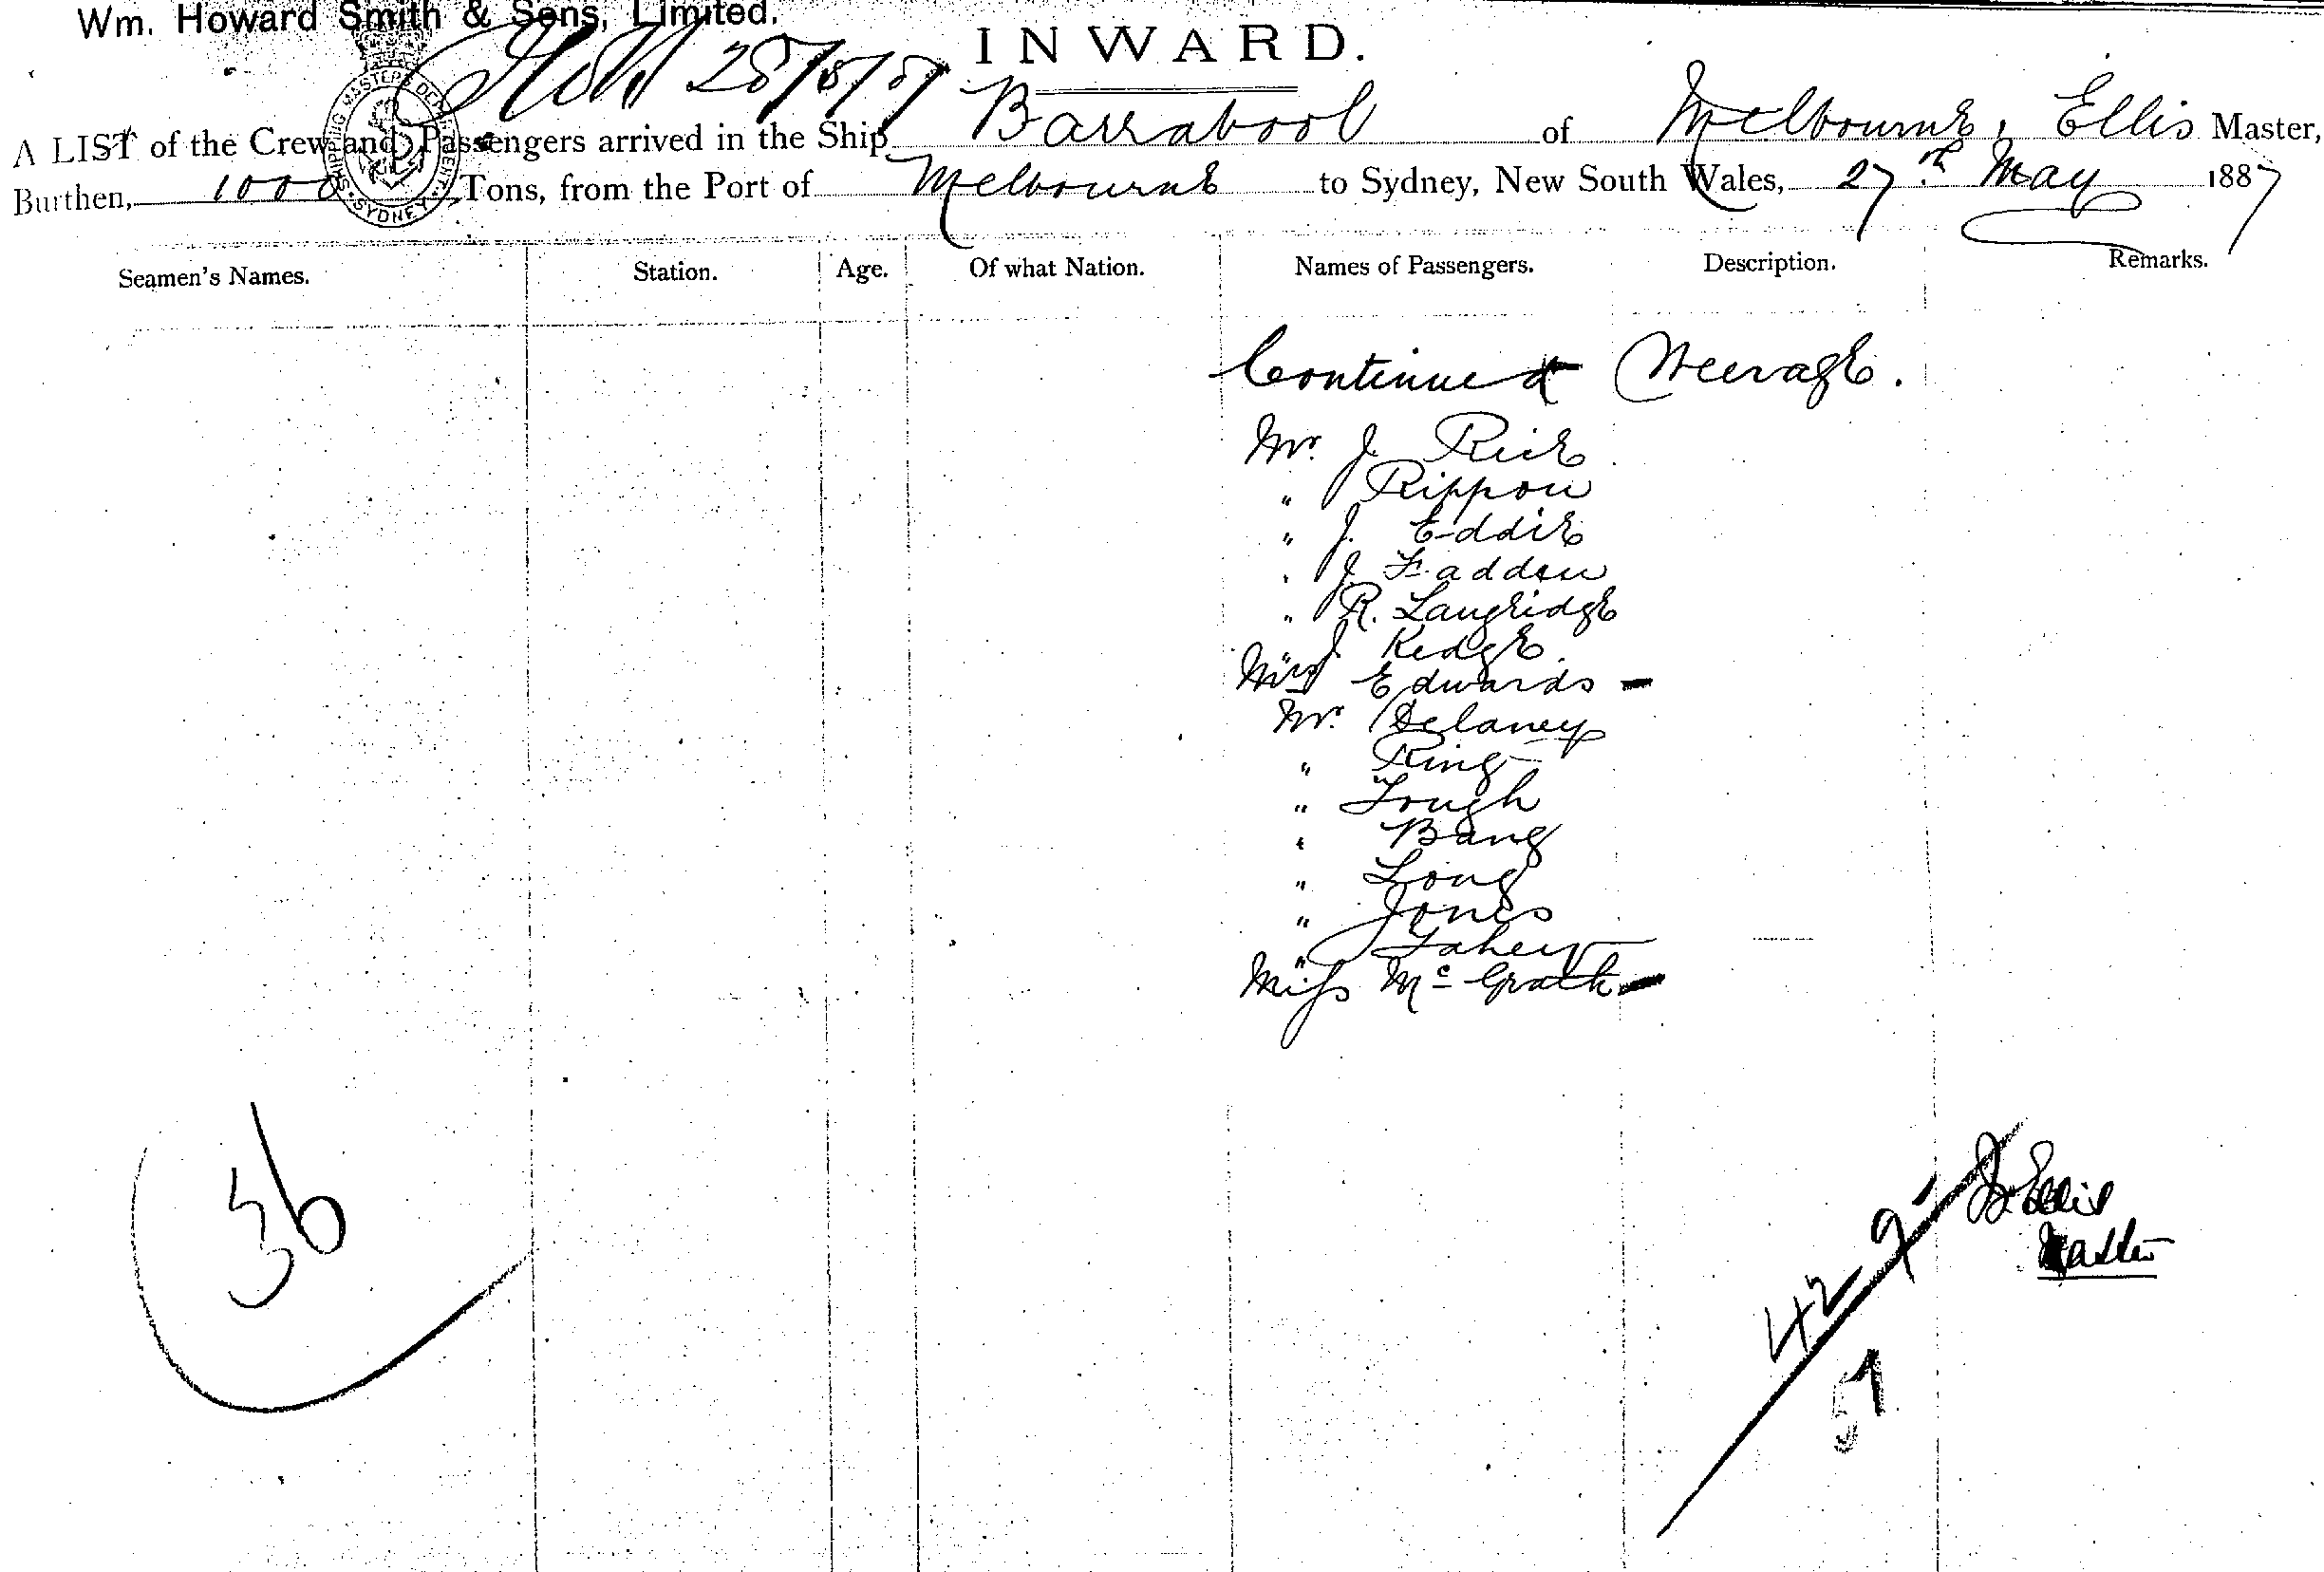 Wm. Howard Smith & Sons, Limited.
INWARD.
28/5/87
SHIPPING MASTER'S DEPARTMENT SYDNEY
A LIST of the Crew and Passengers arrived in the Ship Barrabool of Melbourne, Ellis Master,
Burthen, 1000 Tons, from the Port of Melbourne to Sydney, New South Wales, 27th May 1887
Seamen's Names. Station. Age. Of what Nation. Names of Passengers. Description. Remarks.
Continued Steerage.
Mr. J Rice
" Rippon
" J. Eddie
" J. Fadden
" R. Langridge
" J Kedge.
Mrs Edwards -
Mr. Delaney
" Ring
" Tough
" Bang
" Long
" Jones
" Fahey
Miss McGrath -
36
42 9
51
J Ellis
Master